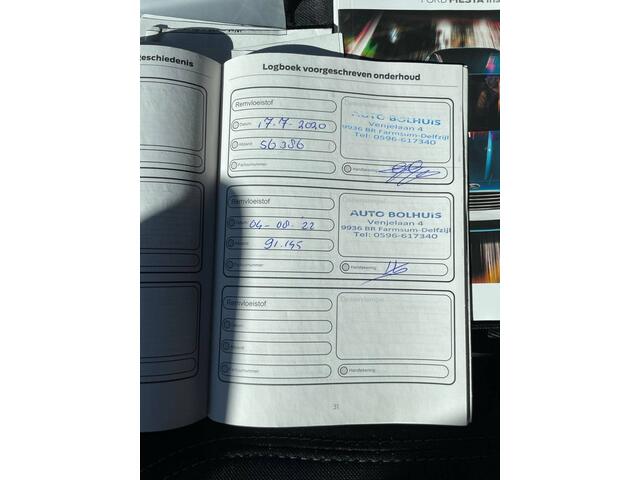 FORD FIESTA
geschiedenis
Logboek voorgeschreven onderhoud
Remvloeistof
Datum: 17-7-2020
Afstand: 56386
Factuurnummer:
AUTO BOLHUIS
Venjelaan 4
9936 BR Farmsum-Delfzijl
Tel: 0596-617340
Handtekening:
Remvloeistof
Datum: 04-08-22
Afstand: 91.145
Factuurnummer:
AUTO BOLHUIS
Venjelaan 4
9936 BR Farmsum-Delfzijl
Tel: 0596-617340
Handtekening:
Remvloeistof
Datum:
Afstand:
Factuurnummer:
Dealerstempel
Handtekening:
31